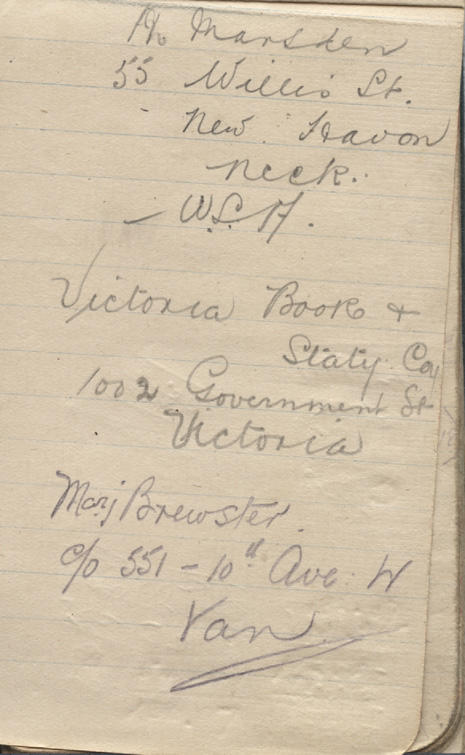 Marsden
55 Willis St.
New Havon
neck.
Victoria Book +
Staty Coy
1002 Government St
Victoria
Marj Brewster.
c/o 551 - 10th Ave W
Van.